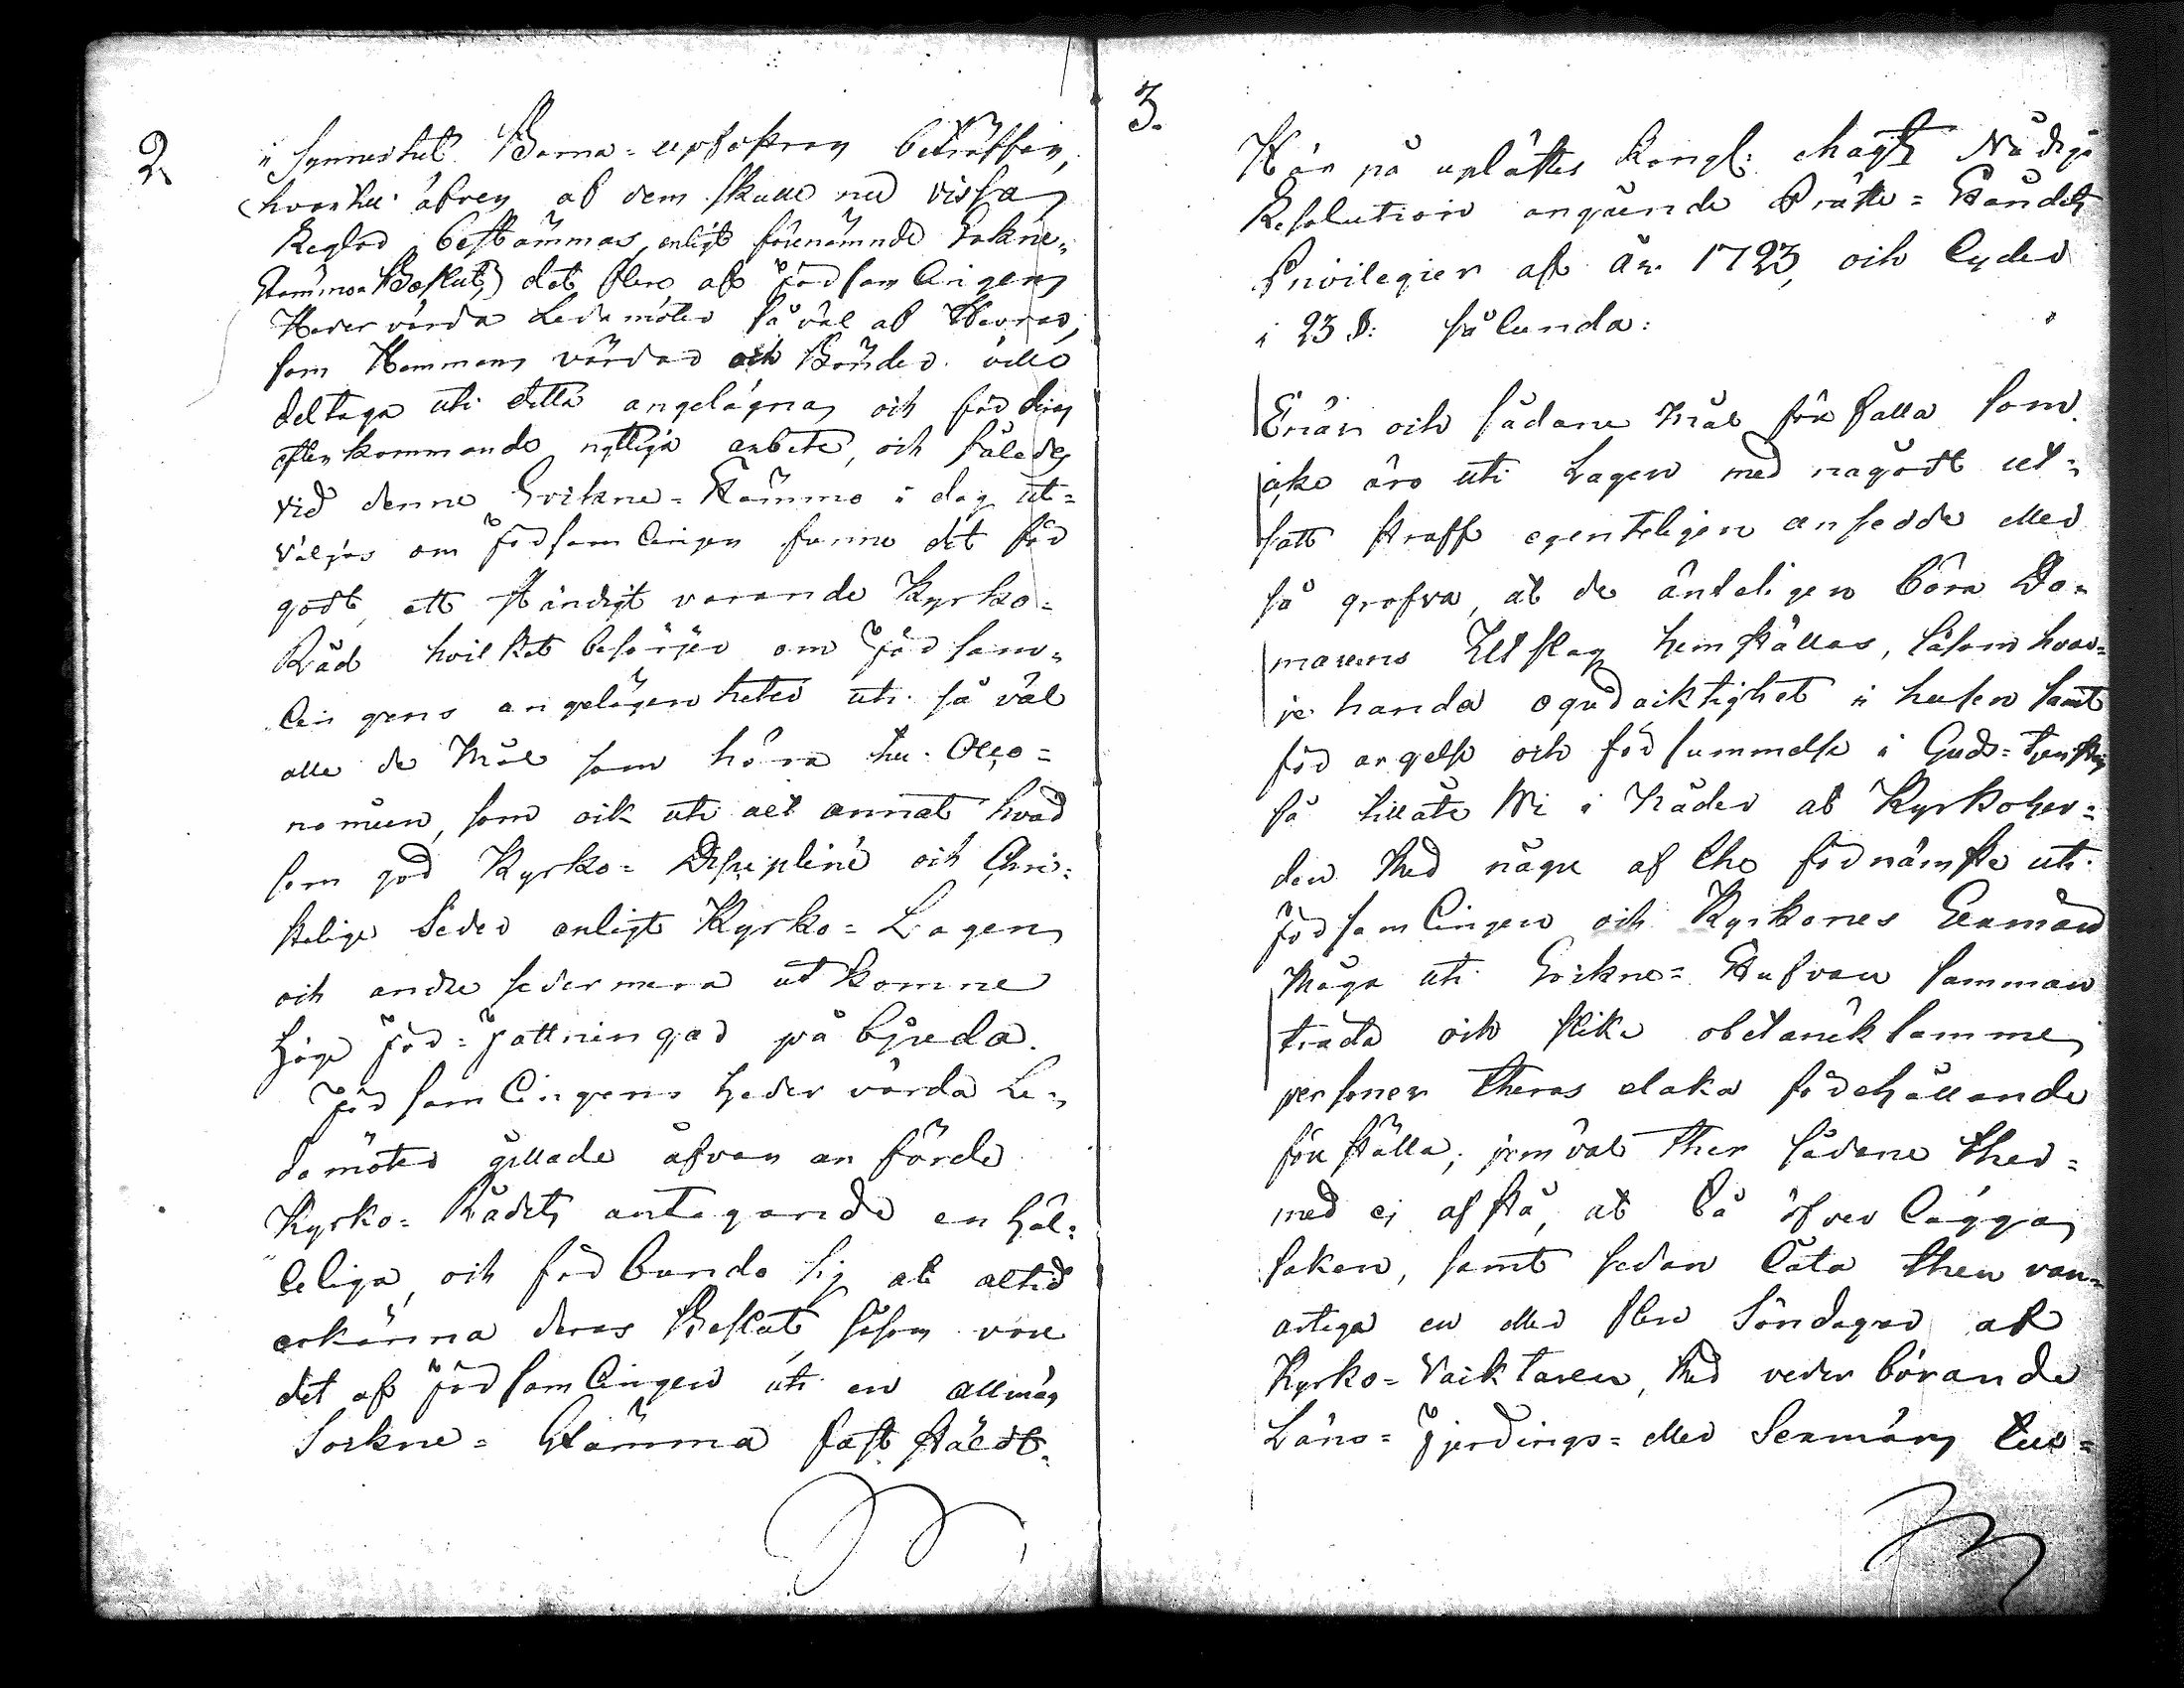 2.
i synnerhet Barna-upfostran beträffar,
(hvartill äfven af dem skulle med vissa
Reglor bestämmas, enligt förenämnde Sokne-
Stämmo Beslut,) det flere af Församlingens
Hedervärda Ledamöter så väl af Herrar,
som Hemmans värdar och Bönder ville
deltaga uti detta angelägna och för deras
efterkommande nyttiga arbete, och således
vid denne Sockne-Stämmo i dag ut-
väljas om Församlingen funne det för
godt, ett ständigt varande Kyrko-
Råd hvilket besörjer om Försam-
lingens angelägenheter uti så väl
alle de Mål som höra till Oeco-
nomien, som ock uti alt annat hvad
som god Kyrko-Disciplin och Chri-
stelige Seder enligt Kyrko-Lagen
och andre sedermera utkomne
Höge För-fattningar påbjuda.
Församlingens Hedervärda Le-
damöter gillade åfvananförde
Kyrko-Rådets antagande enhäl-
leliga, och förbundo sig at altid
erkänna deras Beslut, såsom vore
det af Församlingen uti en allmän
Sockne-Stämma fastställdt.
3.
Här på uplästes Kongl: Maj:ts Nådiga
Resolution angående Präste-Ståndets
Privilegier af år 1723, och lyder
i 23 §: sålunda:
Enär och sådane mål förefalla som
icke äro uti Lagen med något ut-
satt straff egenteligen ansedde eller
så grofva, at de änteligen böra Do-
marens Utslag hemställas, såsom hvar-
jehanda ogudaktighet i husen samt
förargelse och försummelse i Guds-tjensten
så tillåte Wi i Nåder at Kyrkoher-
den med någre af the förnämste uti
Församlingen och Kyrkones Sexmän
måga uti Sockne-Stufvan samman
träda och slike obetänksamme
personer theras elaka förehållande
föreställa; jemväl ther sådane ther-
med ej afstå, at få öfverlägga
saken, samt sedan låta then van-
artiga en eller flere Söndagar af
Kyrko-Vacktaren, med vederbörande
Läns- Fjerdings- eller Sexmäns tus-